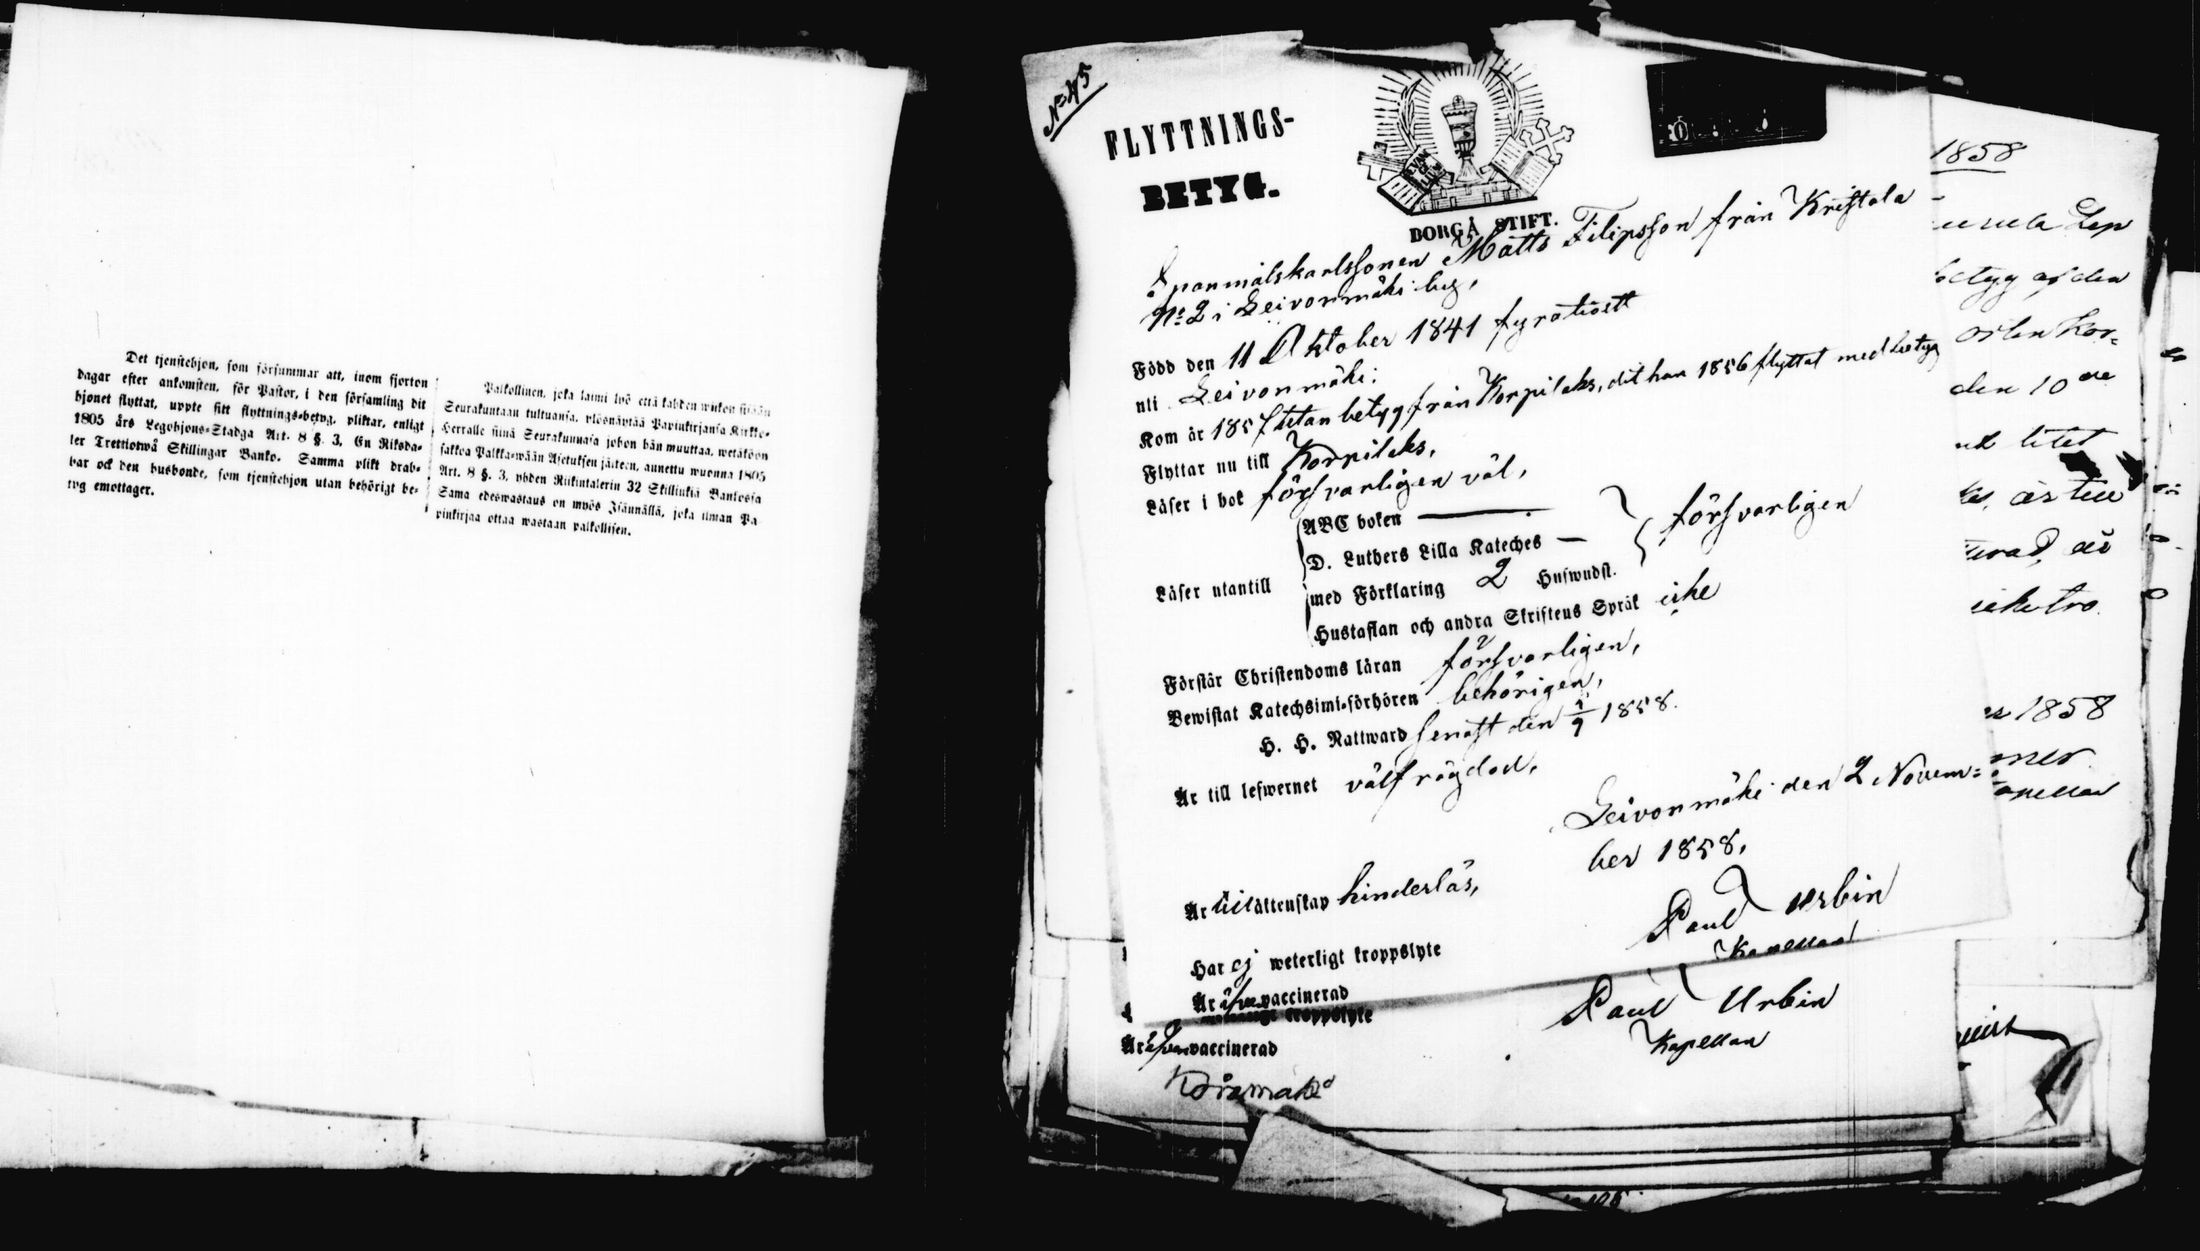 Det tjenstehjon, som försummar att, inom fjorton
dagar efter ankomsten, för Pastor, i den församling dit
hjonet flyttat, uppte sitt flyttnings-betyg, pliktar, enligt
1805 års Legohjons-Stadga Art. 8 §. 3, En Riksda-
ler Trettiotwå Skillingar Banko. Samma plikt drab-
bar ock den husbonde, som tjenstehjon utan behörigt be-
tyg emottager.
Palkollinen, joka laimi lyö että kahden wiikon sisään
Seurakuntaan tultuansa, ylösnäyttää Papinkirjansa Kirkko-
Herralle siinä Seurakunnasa johon hän muuttaa, wetäköön
sakkoa Palkka-wään Asetuksen jälkeen, annettu wuonna 1805
Art. 8 §. 3, yhden Riikintalerin 32 Skillinkiä Bankossa
Sama edeswastaus on myös Isännällä, joka ilman Pa
pinkirjaa ottaa wastaan palkollisen.
No 45
FLYTTNINGS-
BETYG.
BORGÅ STIFT.
Spanmålskarlssonen Matts Filipsson från Kristala
No 2 i Leivonmäki by,
Född den 11 Oktober 1841 fyrationett
uti Leivonmäki;
Kom år 1857 utan betyg från Korpilaks, dit han 1856 flyttat med betyg
Flyttar nu till Korpilaks,
Läser i bok försvarligen väl,
Läser utantill
ABC boken
D. Luthers Lilla Kateches
med Förklaring 2 Huswudst.
försvarligen
Hustaflan och andra Skriftens Språk icke
Förstår Christendoms läran försvarligen,
Bewistat Katechsimi-förhören behörigen,
H. H. Nattward senast den 1858.
Är till lefwernet välfrägdad,
Leivonmäki den 2 Novem=
ber 1858,
Är till äktenskap hinderlös,
Paul Urbin
Kapellan
Har ej weterligt kroppslyte
Är äfven vaccinerad
kroppslyte
Är äfven vaccinerad
Paul Urbin
Kapellan
1858
betyg af den
den 10 de
1858